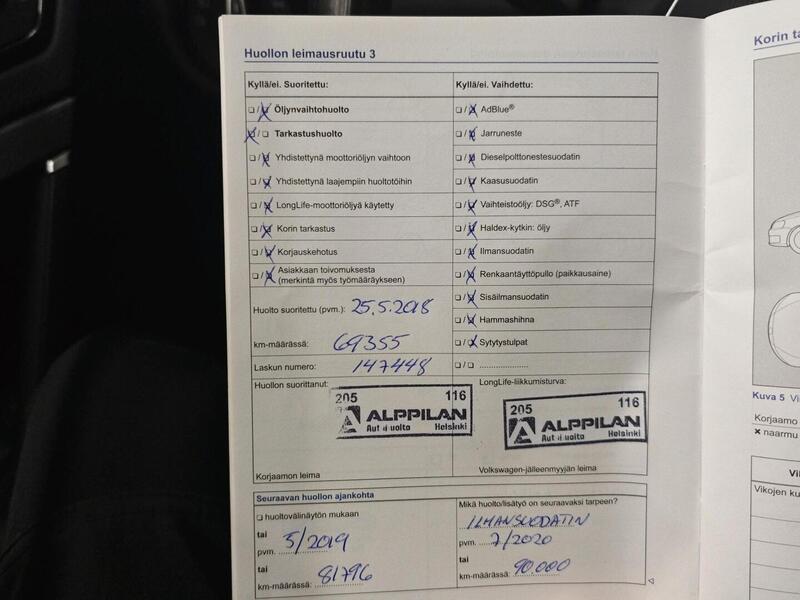 Huollon leimausruutu 3
Kyllä/ei. Suoritettu:
☐/☒ Öljynvaihtohuolto
☒/☐ Tarkastushuolto
☐/☒ Yhdistettynä moottoriöljyn vaihtoon
☐/☒ Yhdistettynä laajempiin huoltotöihin
☐/☒ LongLife-moottoriöljyä käytetty
☐/☒ Korin tarkastus
☐/☒ Korjauskehotus
☐/☒ Asiakkaan toivomuksesta
(merkintä myös työmääräykseen)
Huolto suoritettu (pvm.): 25.5.2018
km-määrässä: 69355
Laskun numero: 147448
Huollon suorittanut:
205 116
ALPPILAN
Autohuolto Helsinki
Korjaamon leima
Kyllä/ei. Vaihdettu:
☐/☒ AdBlue®
☐/☒ Jarruneste
☐/☒ Dieselpolttonestesuodatin
☐/☒ Kaasusuodatin
☐/☒ Vaihteistoöljy: DSG®, ATF
☐/☒ Haldex-kytkin: öljy
☐/☒ Ilmansuodatin
☐/☒ Renkaantäyttöpullo (paikkausaine)
☐/☒ Sisäilmansuodatin
☐/☒ Hammashihna
☐/☒ Sytytystulpat
☐/☐ ....................
LongLife-liikkumisturva:
205 116
ALPPILAN
Autohuolto Helsinki
Volkswagen-jälleenmyyjän leima
Seuraavan huollon ajankohta
☐ huoltovälinäytön mukaan
tai
pvm. 5/2019
tai
km-määrässä: 81796
Mikä huolto/lisätyö on seuraavaksi tarpeen?
ILMANSUODATIN
pvm. 7/2020
tai
km-määrässä: 90.000
Korin ta
Kuva 5 Vi
Korjaamo
✕ naarmu
Vi
Vikojen ku